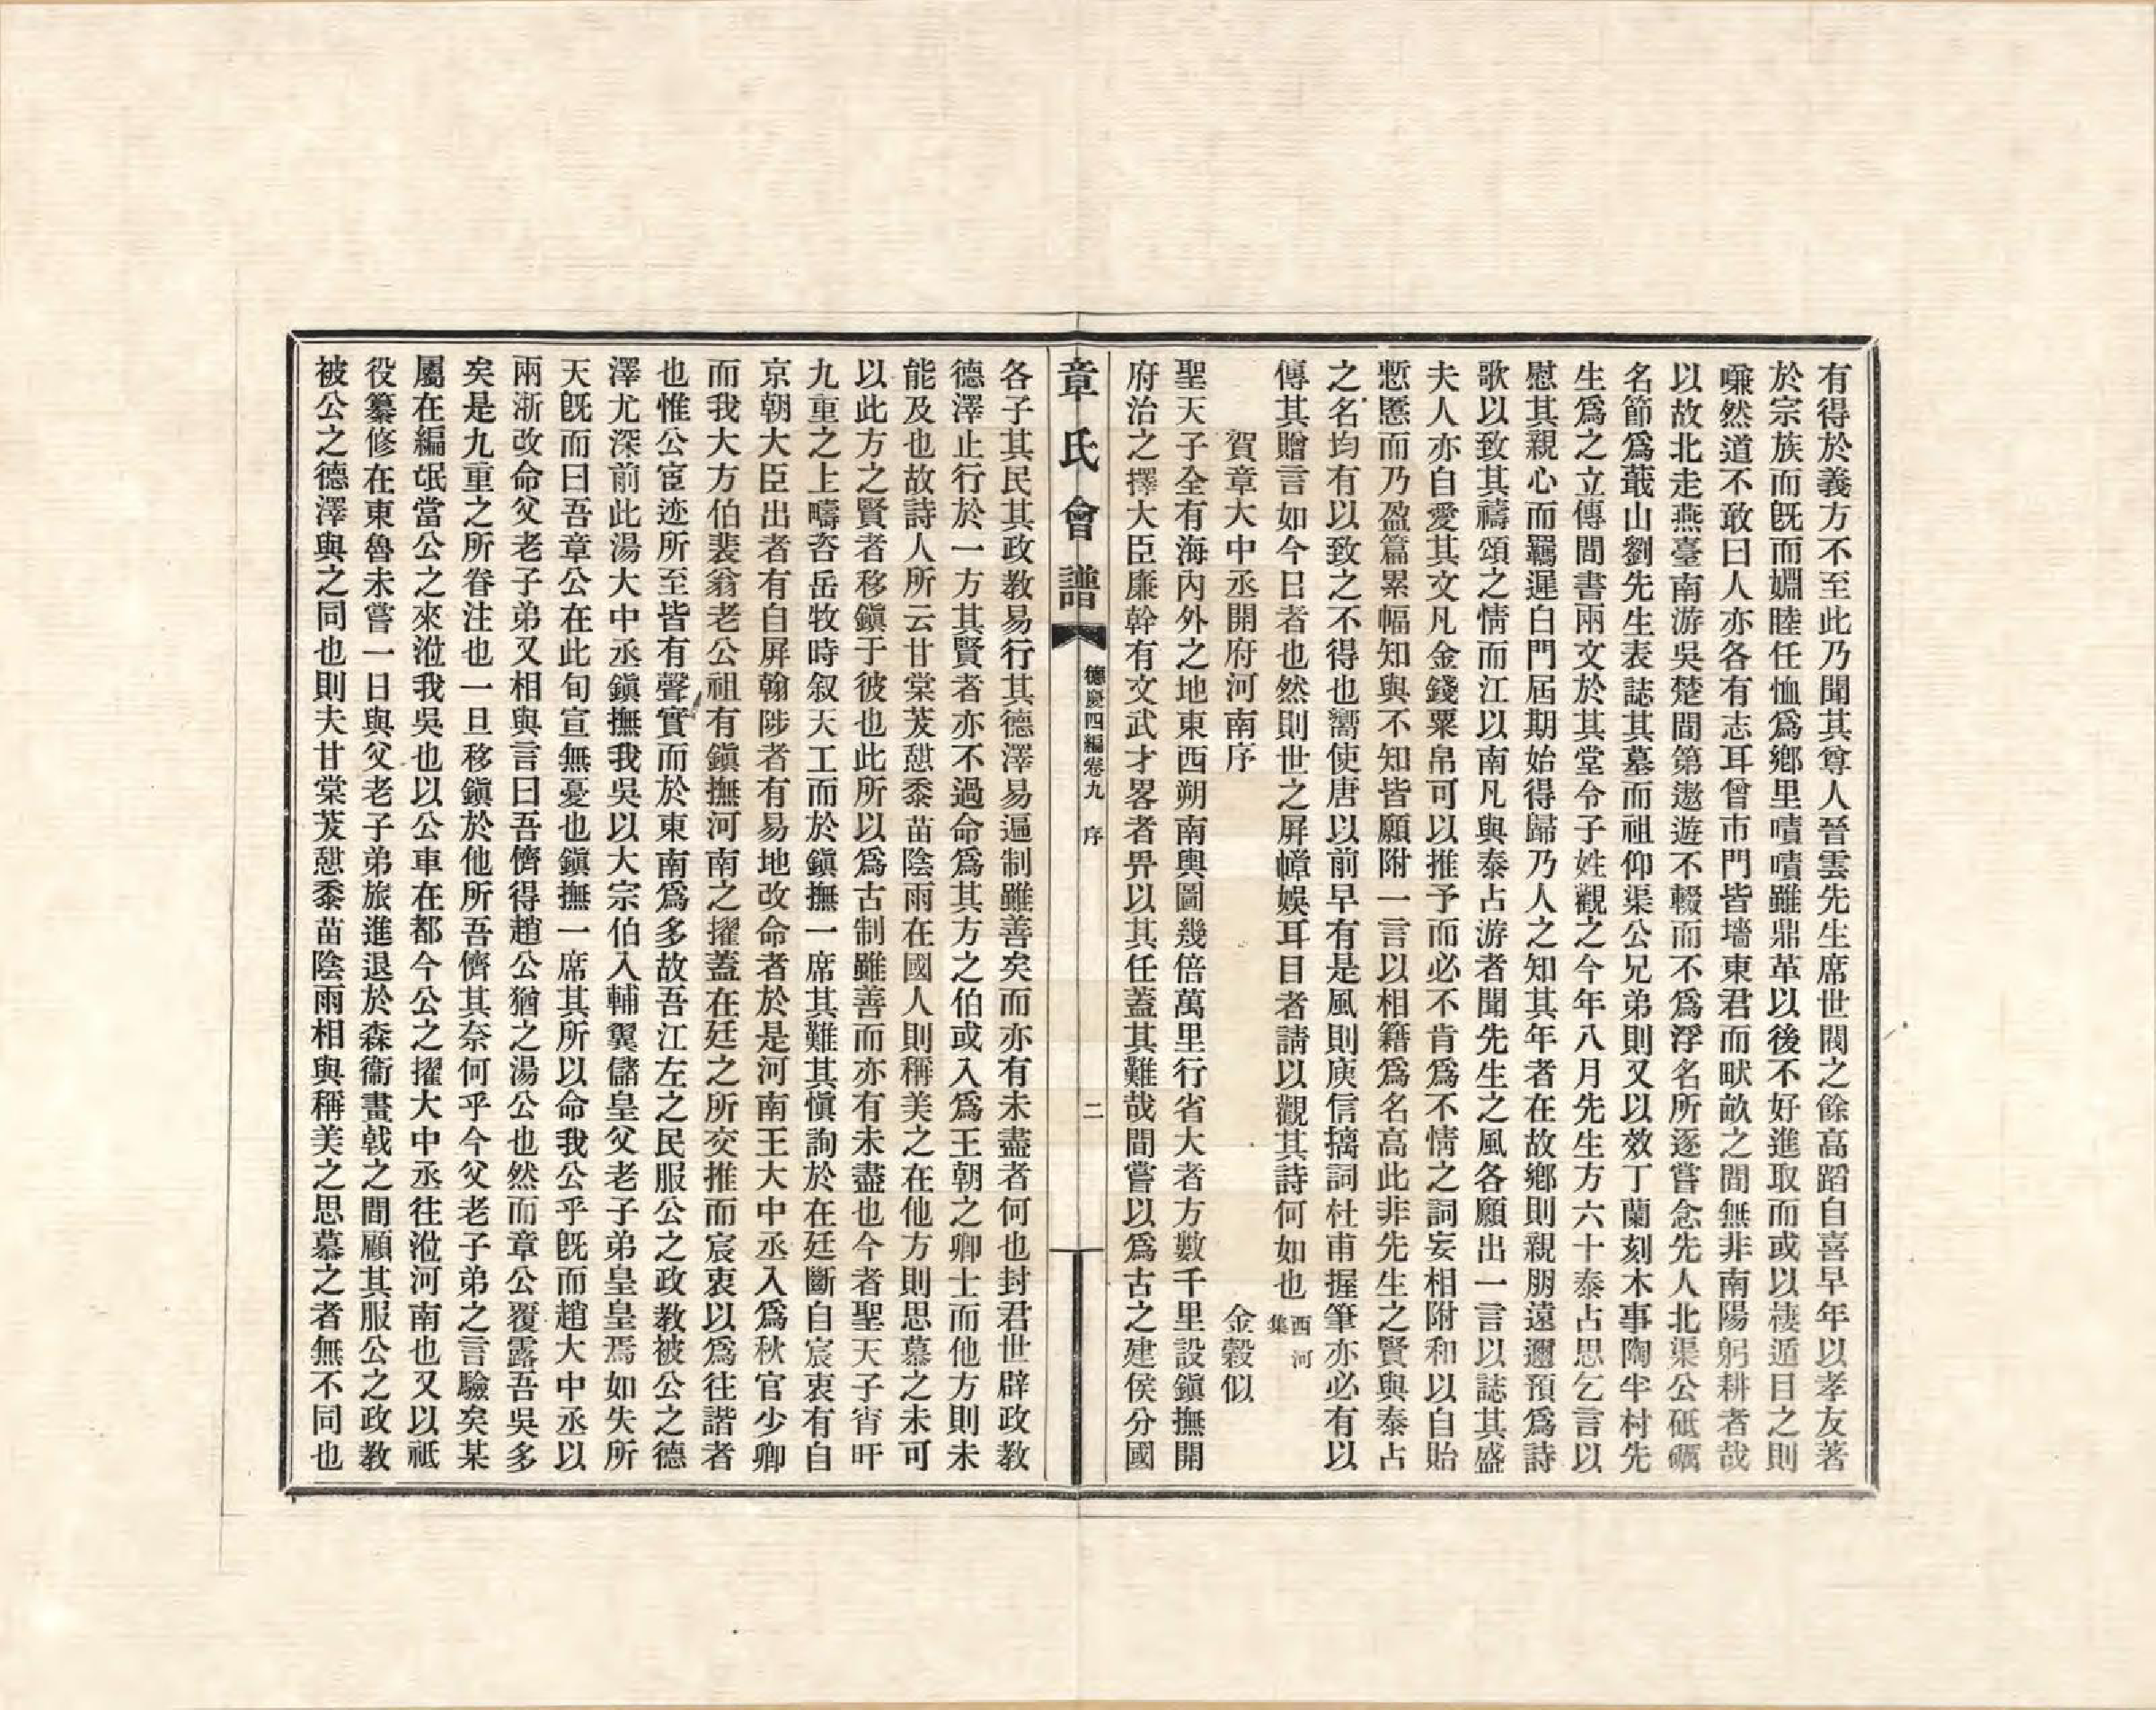 有得於義方不至此乃聞其尊人晉雲先生席世閥之餘高蹈自喜早年以孝友著
於宗族而旣而婣睦任恤爲鄕里嘖嘖雖鼎革以後不好進取而或以棲遁目之則
嗛然道不敢曰人亦各有志耳曾市門皆墻東君而畎畝之間無非南陽躬耕者哉
以故北走燕臺南游吳楚間第遨遊不輟而不爲浮名所逐嘗念先人北渠公砥礪
名節爲蕺山劉先生表誌其墓而祖仰渠公兄弟則又以效丁蘭刻木事陶牢村先
生爲之立傳間書兩文於其堂令子姓觀之今年八月先生方六十泰占思乞言以
慰其親心而羈遲白門屆期始得歸乃人之知其年者在故鄕則親朋遠邇預爲詩
歌以致其禱頌之情而江以南凡與泰占游者聞先生之風各願出一言以誌其盛
夫人亦自愛其文凡金錢粟帛可以推予而必不肯爲不情之詞妄相附和以自貽
慙慝而乃盈篇累幅知與不知皆願附一言以相籍爲名高此非先生之賢與泰占
之名均有以致之不得也嚮使唐以前早有是風則庾信摛詞杜甫握筆亦必有以
傳其贈言如今日者也然則世之屏幛娛耳目者請以觀其詩何如也 西河集
賀章大中丞開府河南序 金穀似
聖天子全有海內外之地東西朔南輿圖幾倍萬里行省大者方數千里設鎭撫開
府治之擇大臣廉幹有文武才畧者畀以其任蓋其難哉間嘗以爲古之建侯分國
章氏會譜 德慶四編卷九 序 二
各子其民其政教易行其德澤易遍制雖善矣而亦有未盡者何也封君世辟政教
德澤止行於一方其賢者亦不過命爲其方之伯或入爲王朝之卿士而他方則未
能及也故詩人所云甘棠茇憩黍苗陰雨在國人則稱美之在他方則思慕之未可
以此方之賢者移鎭于彼也此所以爲古制雖善而亦有未盡也今者聖天子宵旰
九重之上疇咨岳牧時叙天工而於鎭撫一席其難其愼詢於在廷斷自宸衷有自
京朝大臣出者有自屏翰陟者有易地改命者於是河南王大中丞入爲秋官少卿
而我大方伯裴翁老公祖有鎭撫河南之擢蓋在廷之所交推而宸衷以爲往諧者
也惟公宦迹所至皆有聲實而於東南爲多故吾江左之民服公之政教被公之德
澤尤深前此湯大中丞鎭撫我吳以大宗伯入輔翼儲皇父老子弟皇皇焉如失所
天旣而曰吾章公在此旬宣無憂也鎭撫一席其所以命我公乎旣而趙大中丞以
兩浙改命父老子弟又相與言曰吾儕得趙公猶之湯公也然而章公覆露吾吳多
矣是九重之所眷注也一旦移鎭於他所吾儕其奈何乎今父老子弟之言驗矣某
屬在編氓當公之來涖我吳也以公車在都今公之擢大中丞往涖河南也又以祇
役纂修在東魯未嘗一日與父老子弟旅進退於森衞畫戟之間顧其服公之政教
被公之德澤與之同也則夫甘棠茇憩黍苗陰雨相與稱美之思慕之者無不同也